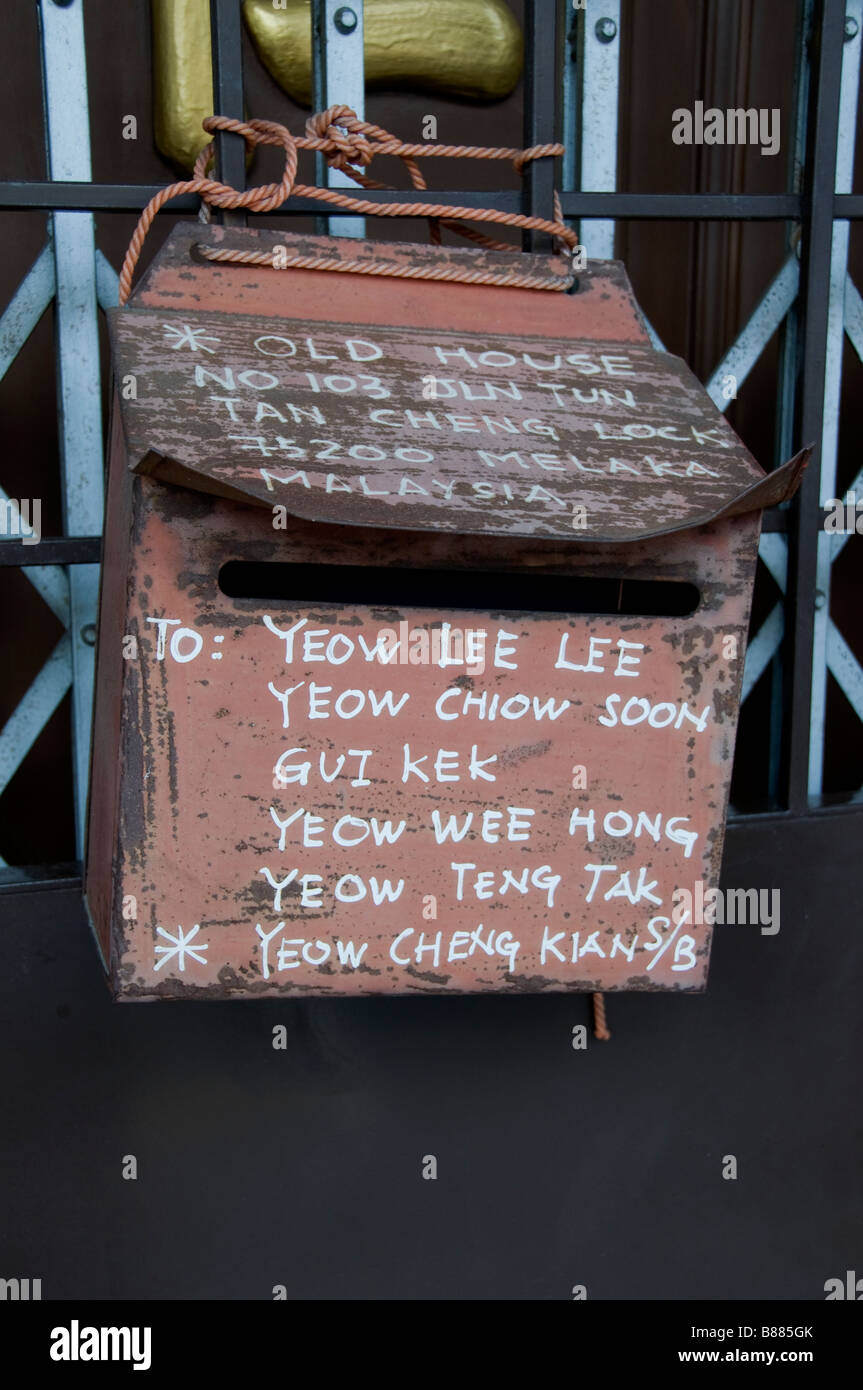 * OLD HOUSE
NO 103 JLN TUN
TAN CHENG LOCK
75200 MELAKA
MALAYSIA
TO: YEOW LEE LEE
YEOW CHIOW SOON
GUI KEK
YEOW WEE HONG
YEOW TENG TAK
* YEOW CHENG KIAN S/B
a alamy
alamy
Image ID: B885GK
www.alamy.com